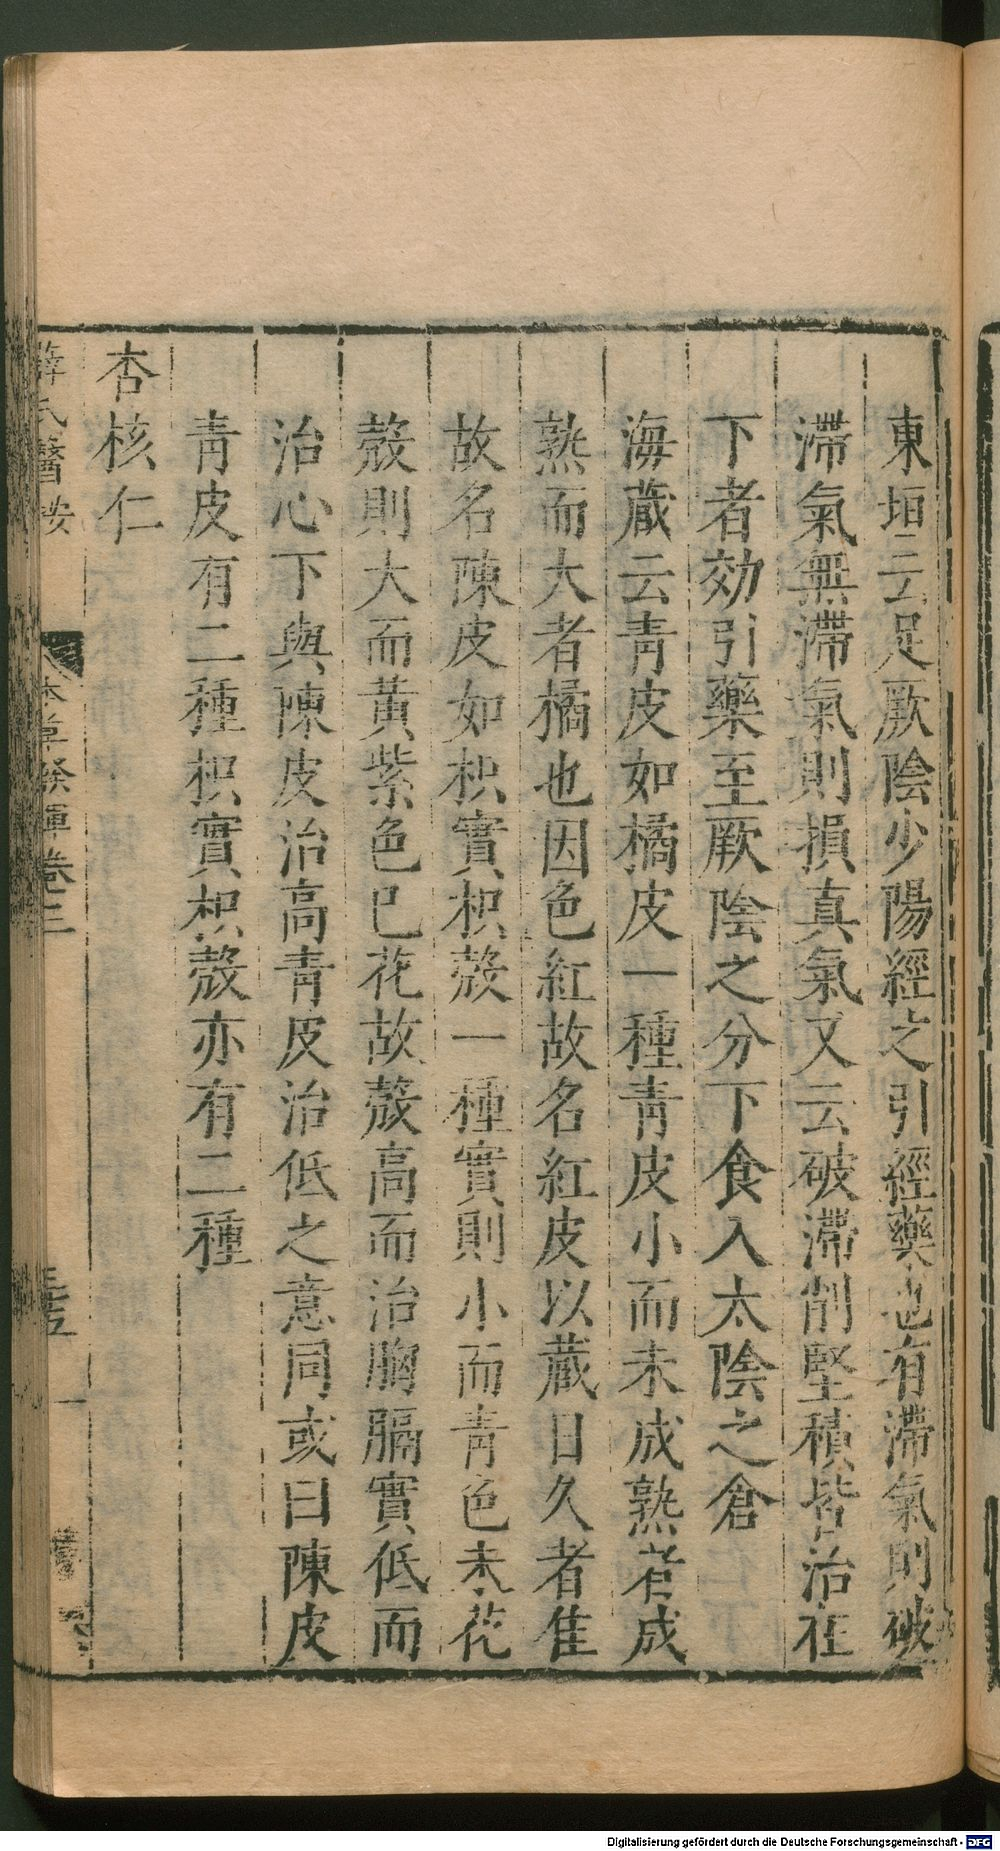 東垣云足厥陰少陽經之引經藥也有滯氣則破
滯氣無滯氣則損真氣又云破滯削堅積皆治在
下者効引藥至厥陰之分下食入太陰之倉
海蔵云青皮如橘皮一種青皮小而未成熟者成
熟而大者橘也因色紅故名紅皮以蔵日久者佳
故名陳皮如枳實枳殼一種實則小而青色未花
殼則大而黃紫色巳花故殼高而治胸膈實低而
治心下與陳皮治高青皮治低之意同或曰陳皮
青皮有二種枳實枳殼亦有二種
杏核仁
薛氏醫按
本草發揮卷三
Digitalisierung gefördert durch die Deutsche Forschungsgemeinschaft - DFG